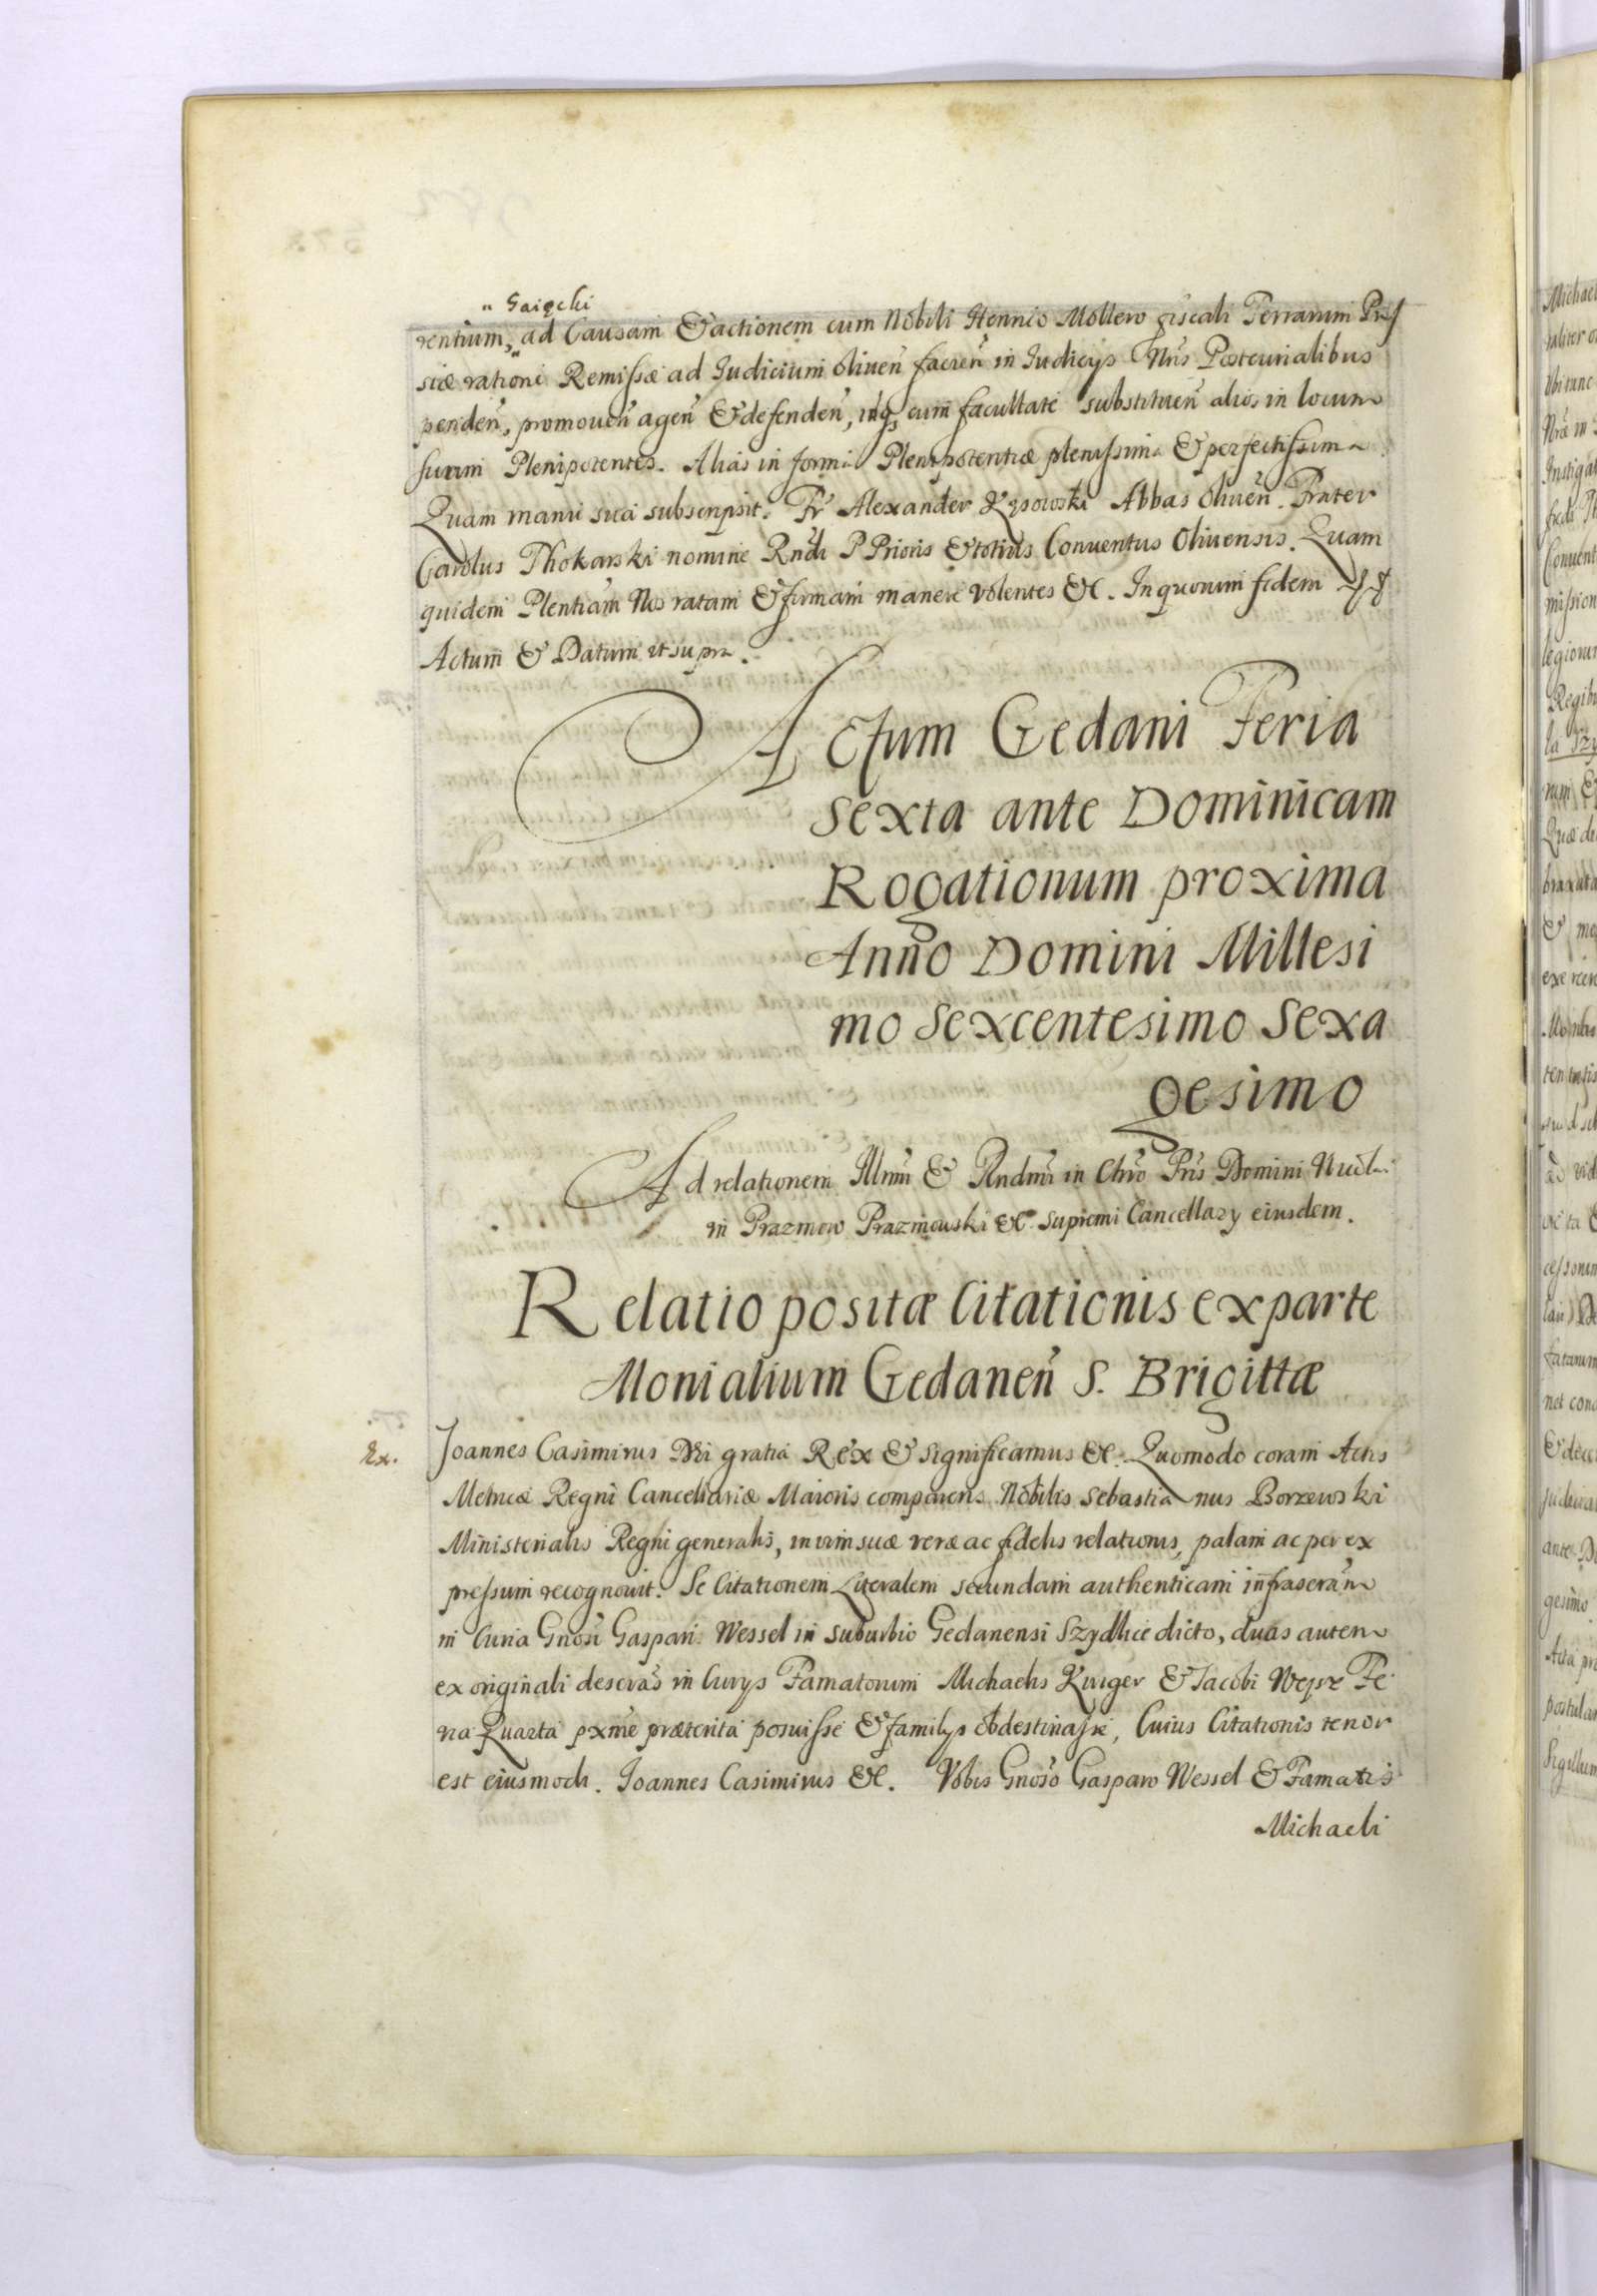 " Gaięcki
rentium, " ad Causam & actionem cum Nobili Henrico Mollero fiscali Terrarum Pruſ
siæ rationi Remiſsæ ad Judicium Oliueñ facień in Iudicijs Nr̃is Postcurialibus
pendeñ, promoueñ ageñ & defendeñ, cum facultate substitueñ alios in locum
ſuum Plenipotentes. Alias in forma Plenipotentiæ pleniſsima & perfectiſsima
Quam manu sua subscripsit. Fr Alexander Kęsowski Abbas Oliueñ. Frater
Carolus Thokarski nomine Rndi P Prioris & totius Conuentus Oliuensis. Quam
quidem Plentiam Nos ratam & firmam manere volentes &c. In quorum fidem
Actum & Datum ut supra.
Actum Gedani Feria
Sexta ante Dominicam
Rogationum proxima
Anno Domini Millesi
mo Sexcentesimo Sexa
gesimo
Ad relationem Illmi & Rndmi in Chro Pris Domini Nicolai
in Prazmow Prazmouski &c. Supremi Cancellarij eiusdem.
Relatio positæ Citationis ex parte
Monialium Gedaneñ S. Brigittæ
Ex. Joannes Casimirus Dei gratia Rex & Significamus &c. Quomodo coram Actis
Metricæ Regni Cancellariæ Maioris comparens Nobilis Sebastianus Borzewski
Ministerialis Regni generalis, in vim suæ veræ ac fidelis relationis, palam ac per ex
preſsum recognouit. Se Citationem Literalem secundam authenticam infrascram
in Curia Gnosi Gaspari Wessel in suburbio Gedanensi Szydlice dicto, duas autem
ex originali descras in Curijs Famatorum Michaelis Kruger & Iacobi Wepr Fe
ria Quarta pxme præterita posuiſse & familijs obdestinaſse, Cuius Citationis tenor
est eiusmodi. Joannes Casimirus &c. Vobis Gnoso Gasparo Wessel & Famatis
Michaeli